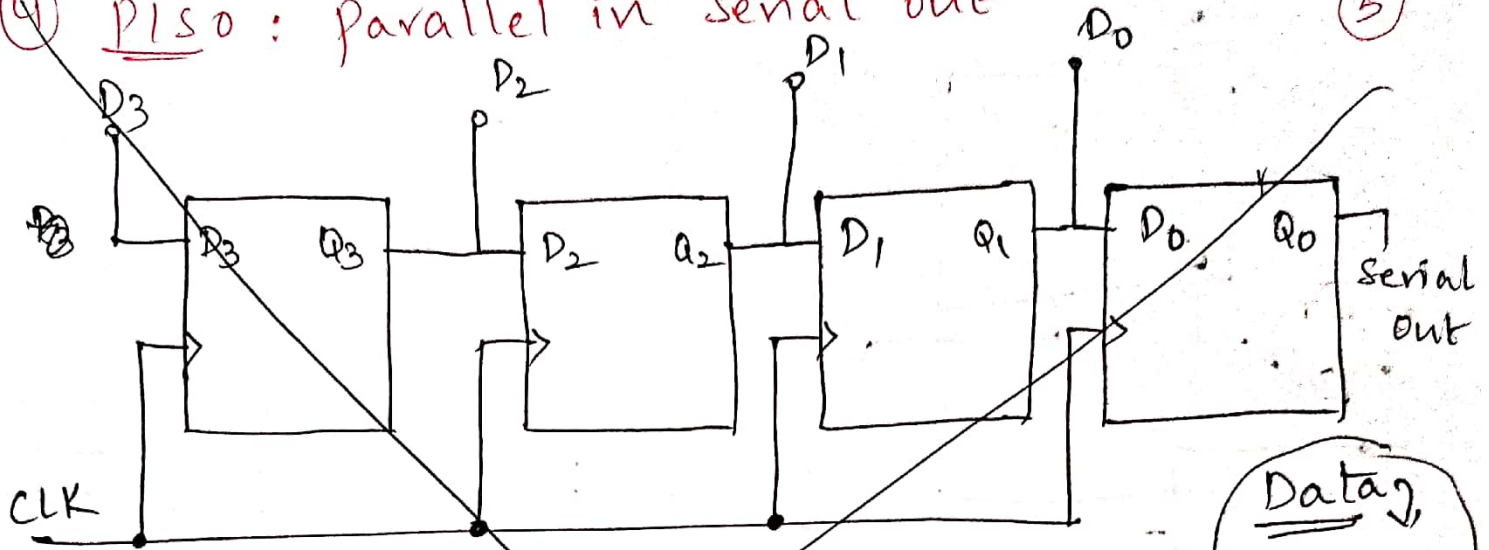 ④ PISO : Parallel in serial out ⑤
D3 D2 D1 D0
D3 Q3 D2 Q2 D1 Q1 D0 Q0
Serial
out
CLK